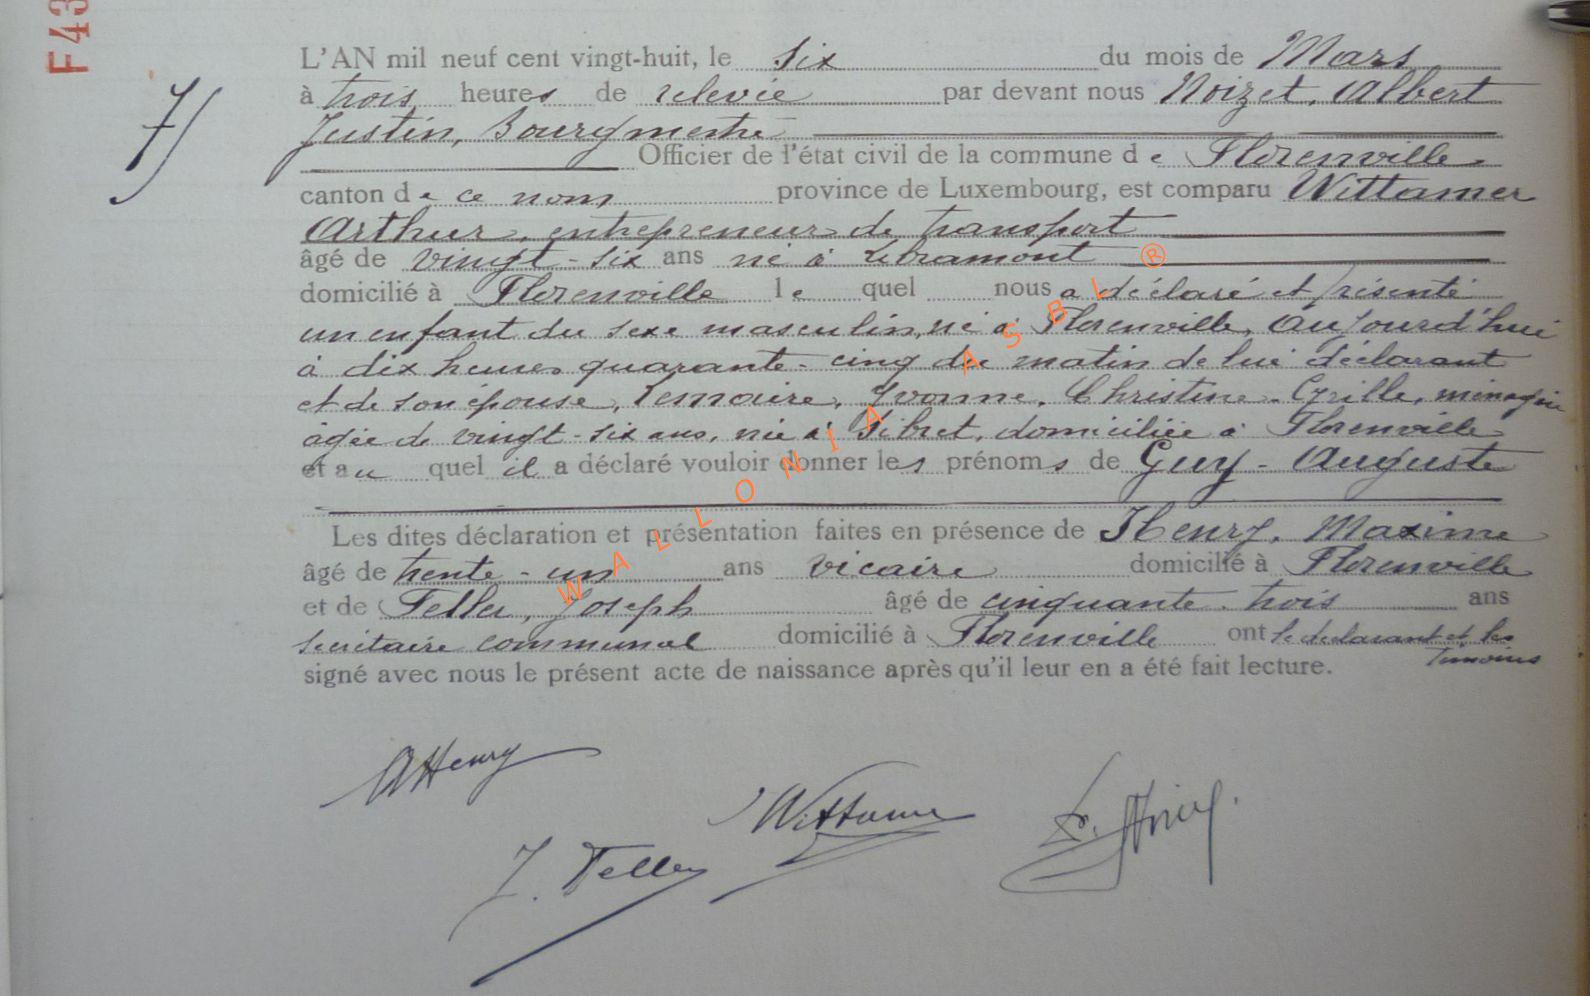 F43
7
L'AN mil neuf cent vingt-huit, le six du mois de Mars
à trois heures de relevée par devant nous Noizet, Albert
Justin, Bourgmestre
Officier de l'état civil de la commune de Florenville
canton de ce nom province de Luxembourg, est comparu Wittamer
Arthur, entrepreneur de transport
âgé de vingt-six ans né à Libramont
domicilié à Florenville lequel nous a déclaré et présenté
un enfant du sexe masculin, né à Florenville, aujourd'hui
à dix heures quarante-cinq du matin de lui déclarant
et de son épouse, Lemaire, Yvonne, Christine-Cyrille, ménagère
agée de vingt-six ans, née à Sibret, domiciliée à Florenville
et auquel il a déclaré vouloir donner les prénoms de Guy-Auguste
Les dites déclaration et présentation faites en présence de Henry, Maxime
âgé de trente-un ans vicaire domicilié à Florenville
et de Feller, Joseph âgé de cinquante-trois ans
secrétaire communal domicilié à Florenville ont le déclarant et les
témoins
signé avec nous le présent acte de naissance après qu'il leur en a été fait lecture.
WALLONIA ASBL ®
Henry
Wittamer
J. Feller